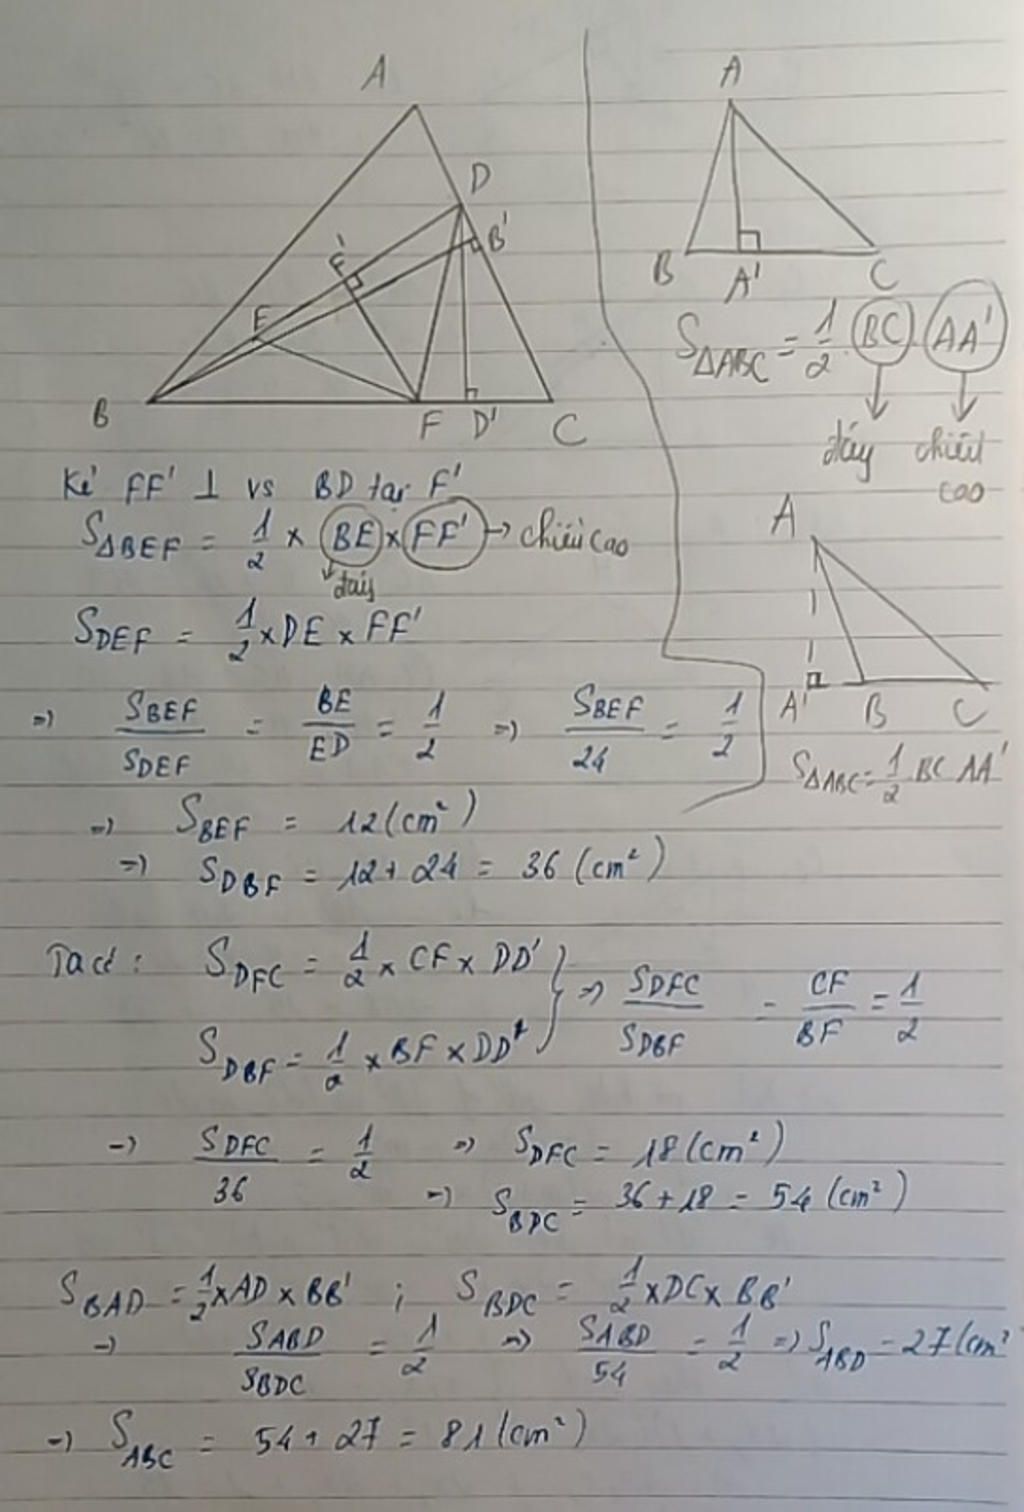 A
D
B'
F'
E
B
F
D'
C
A
B
A'
C
S△ABC = 1/2 . BC . AA'
đáy chiều
cao
A
A' B C
S△ABC = 1/2 . BC AA'
Kẻ FF' ⊥ vs BD tại F'
S△BEF = 1/2 × BE × FF' → chiều cao
đáy
SDEF = 1/2 × DE × FF'
=> SBEF/SDEF = BE/ED = 1/2 => SBEF/24 = 1/2
=> SBEF = 12 (cm²)
=> SDBF = 12 + 24 = 36 (cm²)
Ta có : SDFC = 1/2 × CF × DD'
SDBF = 1/2 × BF × DD'
=> SDFC/SDBF = CF/BF = 1/2
=> SDFC/36 = 1/2 => SDFC = 18 (cm²)
=> SBDC = 36 + 18 = 54 (cm²)
SBAD = 1/2 × AD × BB' ; SBDC = 1/2 × DC × BB'
=> SABD/SBDC = 1/2 => SABD/54 = 1/2 => SABD = 27 (cm²
=> SABC = 54 + 27 = 81 (cm²)